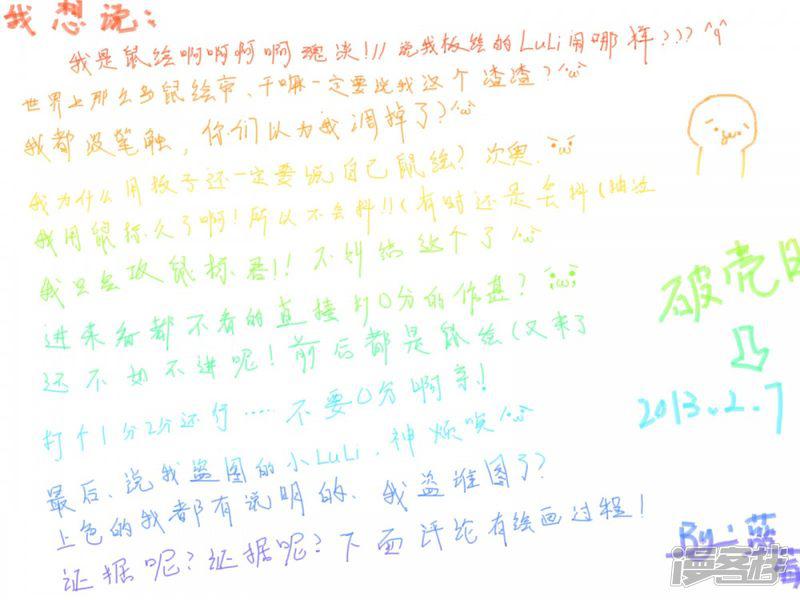 我想说：
我是鼠绘啊啊啊啊魂淡!!! 说我板绘的LuLi用哪样??? ^q^
世界上那么多鼠绘帝、干嘛一定要说我这个渣渣? ^ω^
我都没笔触，你们以为我调掉了? ^ω^
我为什么用板子还一定要说自己鼠绘? 次奥. ^ω^
我用鼠标久了啊! 所以不会抖!!(有时还是会抖(抽泣
我只会攻鼠标君!! 不纠结这个了 ^ω^
进来看都不看的直接打0分的作甚? ;ω;
还不如不进呢! 前后都是鼠绘(又来了
打个1分2分还行····· 不要0分啊亲!
最后、说我盗图的小LuLi、神烦唉 ^ω^
上色的我都有说明的、我盗谁图了?
证据呢? 证据呢? 下面评论有绘画过程!
破壳日
2013.2.7
By：蓝莓
漫客栈